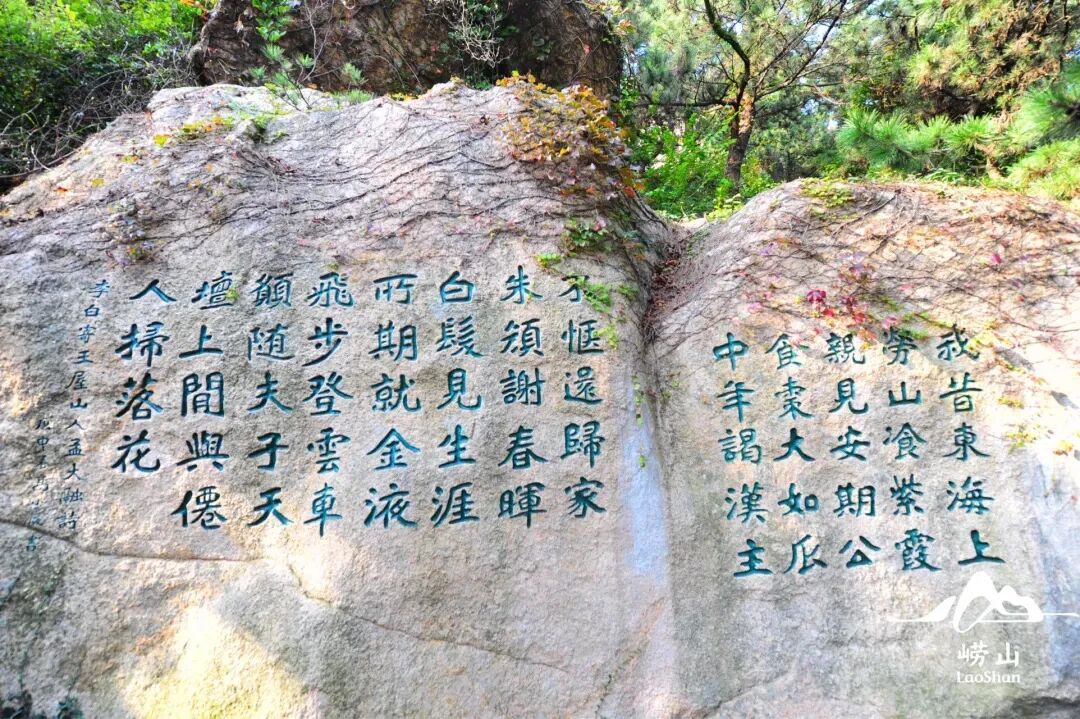 我昔東海上
勞山飡紫霞
親見安期公
食棗大如瓜
中年謁漢主
不愜還歸家
朱顏謝春暉
白髮見生涯
所期就金液
飛步登雲車
願随夫子天
壇上閒與僊
人掃落花
李白寄王屋山人孟大融詩
崂山
LaoShan